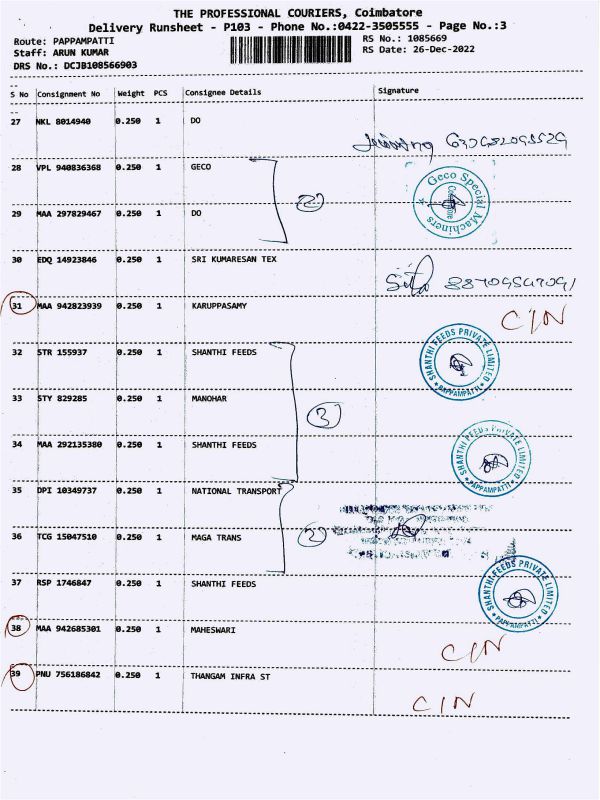 THE PROFESSIONAL COURIERS, Coimbatore
Delivery Runsheet - P103 - Phone No.:0422-3505555 - Page No.:3
Route: PAPPAMPATTI
Staff: ARUN KUMAR
DRS No.: DCJB108566903
RS No.: 1085669
RS Date: 26-Dec-2022
S No Consignment No Weight PCS Consignee Details Signature
27 NKL 8014940 0.250 1 DO
28 VPL 940836368 0.250 1 GECO
Geco Special Machiners
29 MAA 297829467 0.250 1 DO
2
30 EDQ 14923846 0.250 1 SRI KUMARESAN TEX
31 MAA 942823939 0.250 1 KARUPPASAMY
CIN
32 STR 155937 0.250 1 SHANTHI FEEDS
SHANTHI FEEDS PRIVATE LIMITED
PAPPAMPATTI
33 STY 829285 0.250 1 MANOHAR
3
34 MAA 292135380 0.250 1 SHANTHI FEEDS
SHANTHI FEEDS PRIVATE LIMITED
PAPPAMPATTI
35 DPI 10349737 0.250 1 NATIONAL TRANSPORT
36 TCG 15047510 0.250 1 MAGA TRANS
2
37 RSP 1746847 0.250 1 SHANTHI FEEDS
SHANTHI FEEDS PRIVATE LIMITED
PAPPAMPATTI
38 MAA 942685301 0.250 1 MAHESWARI
CIN
39 PNU 756186842 0.250 1 THANGAM INFRA ST
CIN